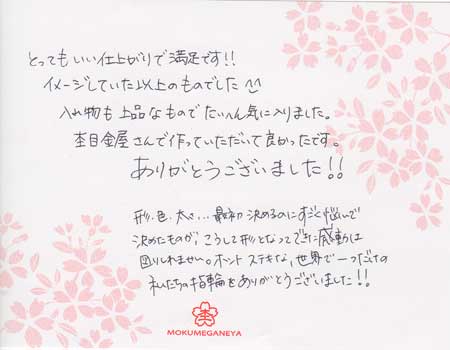 とってもいい仕上がりで満足です!!
イメージしていた以上のものでした
入れ物も上品なものでたいへん気に入りました。
杢目金屋さんで作っていただいて良かったです。
ありがとうございました!!
形、色、太さ... 最初決めるのにすごく悩んで
決めたものが、こうして形となってできた感動は
図りしれません。ホントステキな、世界で一つだけの
私たちの指輪をありがとうございました!!
MOKUMEGANEYA